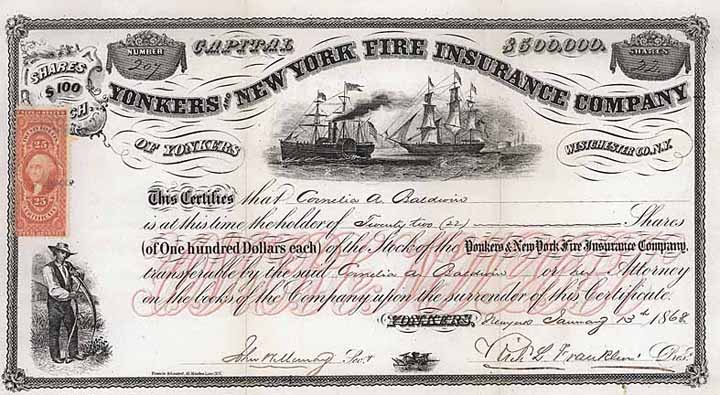 CAPITAL $500,000.
NUMBER SHARES
209 22
SHARES
$100
EACH.
YONKERS AND NEW YORK FIRE INSURANCE COMPANY
OF YONKERS WESTCHESTER CO. N.Y.
25 25
This Certifies that Cornelia A. Baldwin
is at this time the holder of Twenty two (22) Shares
(of One hundred Dollars each) of the Stock of the Yonkers & New York Fire Insurance Company,
transferable by the said Cornelia A. Baldwin or her Attorney
on the books of the Company upon the surrender of this Certificate.
YONKERS, New York January 13th 1868
John W. Secy. Franklin Prest.